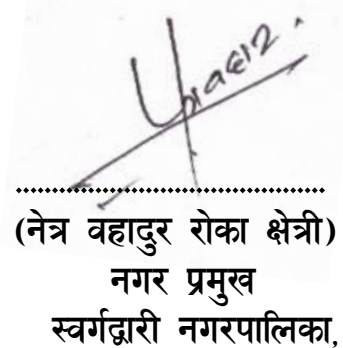 ........................................
(नेत्र वहादुर रोका क्षेत्री)
नगर प्रमुख
स्वर्गद्वारी नगरपालिका,